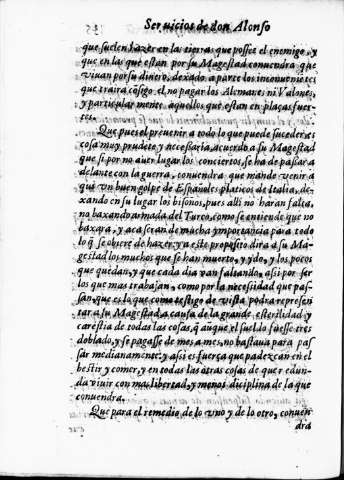 Seruicios de don Alonso
que suelen hazer en las tierras que possee el enemigo, y
que en las que estan por su Magestad conuendra que
viuan por su dinero, dexado a parte los inconueniẽtes
que traira cõsigo el no pagar los Alemanes ni Valones,
y particularmente aquellos que estan en plaças fuer-
tes.
Que pues el preuenir a todo lo que puede suceder es
cosa muy prudẽte y necessaria, acuerdo a su Magestad
que si por no auer lugar los conciertos, se ha de passar a
delante con la guerra, conuendra que mande venir a
qui vn buen golpe de Españoles platicos de Italia, de-
xando en su lugar los bisoños, pues alli no haran falta,
no baxando armada del Turco, como se entiende que no
baxara, y aca seran de mucha importancia para todo
lo q̃ se obiere de hazer, y a este proposito dira a su Ma-
gestad los muchos que se han muerto, y ydo, y los pocos
que quedan, y que cada dia van faltando, assi por ser
los que mas trabajan, como por la necesidad que pas-
san, que es lo que como testigo de vista podra represen
tar a su Magestad, a causa de la grande esterilidad y
carestia de todas las cosas, q̃ aũque el sueldo fuesse tres
doblado, y se pagasse de mes a mes, no bastaua para pas
sar medianamente: y assi es fuerça que padezcan en el
bestir y comer, y en todas las otras cosas de que redun-
da viuir con mas libertad, y menos diciplina de la que
conuendra.
Que para el remedio de lo vno y de lo otro, conuen
dra